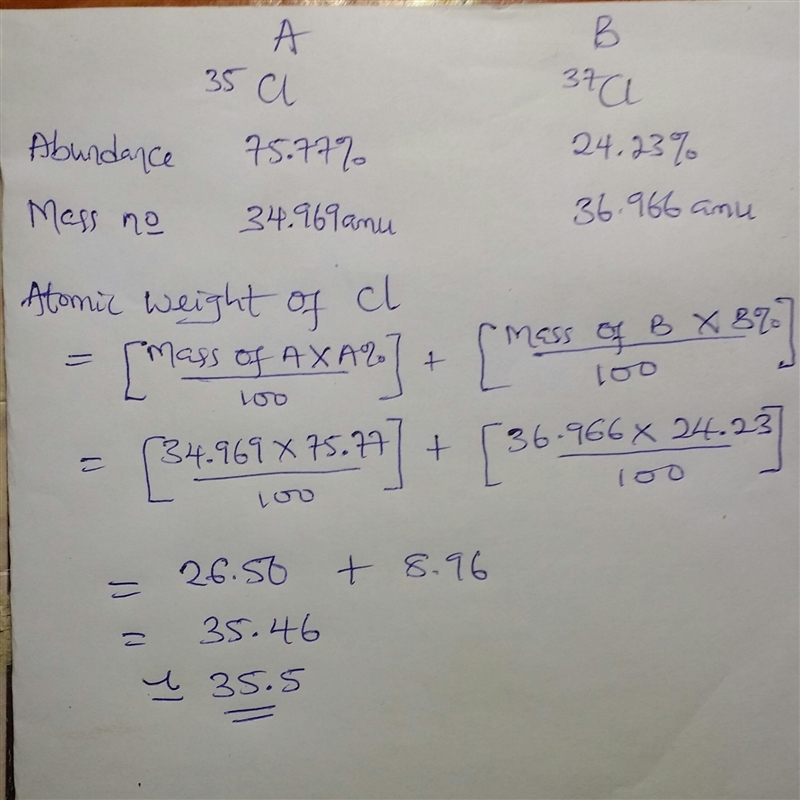 A B
³⁵Cl ³⁷Cl
Abundance 75.77% 24.23%
Mass no 34.969amu 36.966 amu
Atomic weight of Cl
= [Mass of A X A% / 100] + [Mass of B X B% / 100]
= [34.969 X 75.77 / 100] + [36.966 X 24.23 / 100]
= 26.50 + 8.96
= 35.46
≃ 35.5